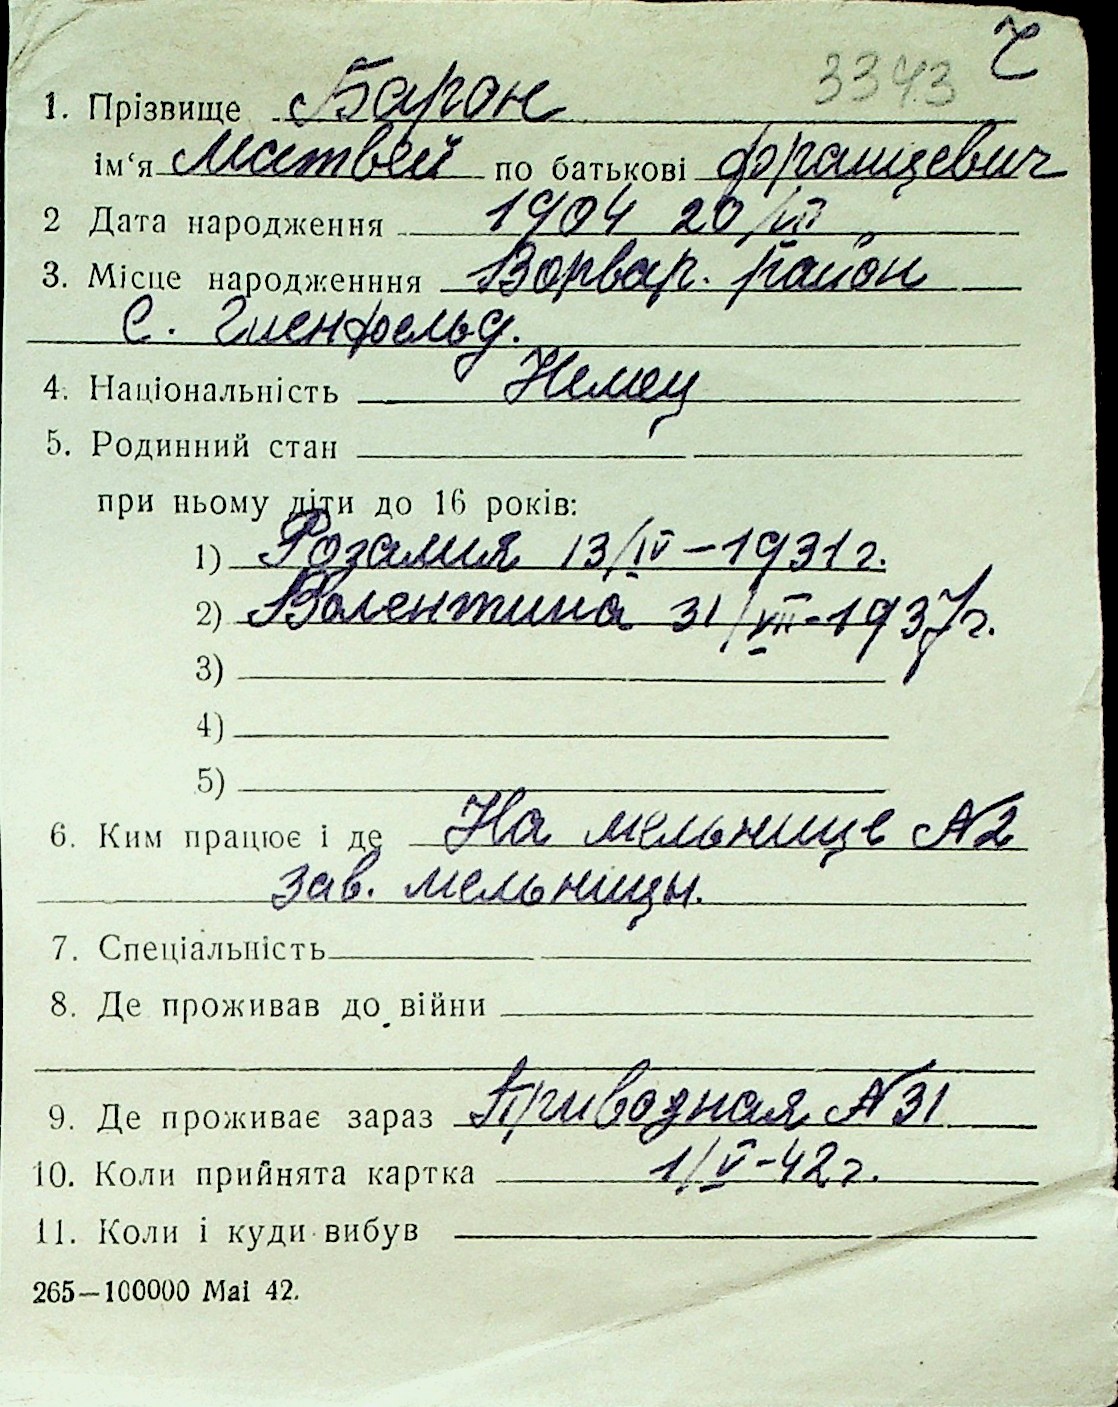 3343 Ч
1. Прізвище Барон
ім‘я Матвей по батькові Францевич
2 Дата народження 1904 20/VII
3. Місце народженння Ворвар. район
с. Гиенфельд.
4. Національність Немец
5. Родинний стан
при ньому діти до 16 років:
1) Розалия 13/IV–1931 г.
2) Валентина 31/VIII-1937 г.
3)
4)
5)
6. Ким працює і де На мельнице №2
зав. мельницы.
7. Спеціальність
8. Де проживав до війни
9. Де проживає зараз Приводная №31
10. Коли прийнята картка 1/V-42 г.
11. Коли і куди вибув
265—100000 Маі 42.